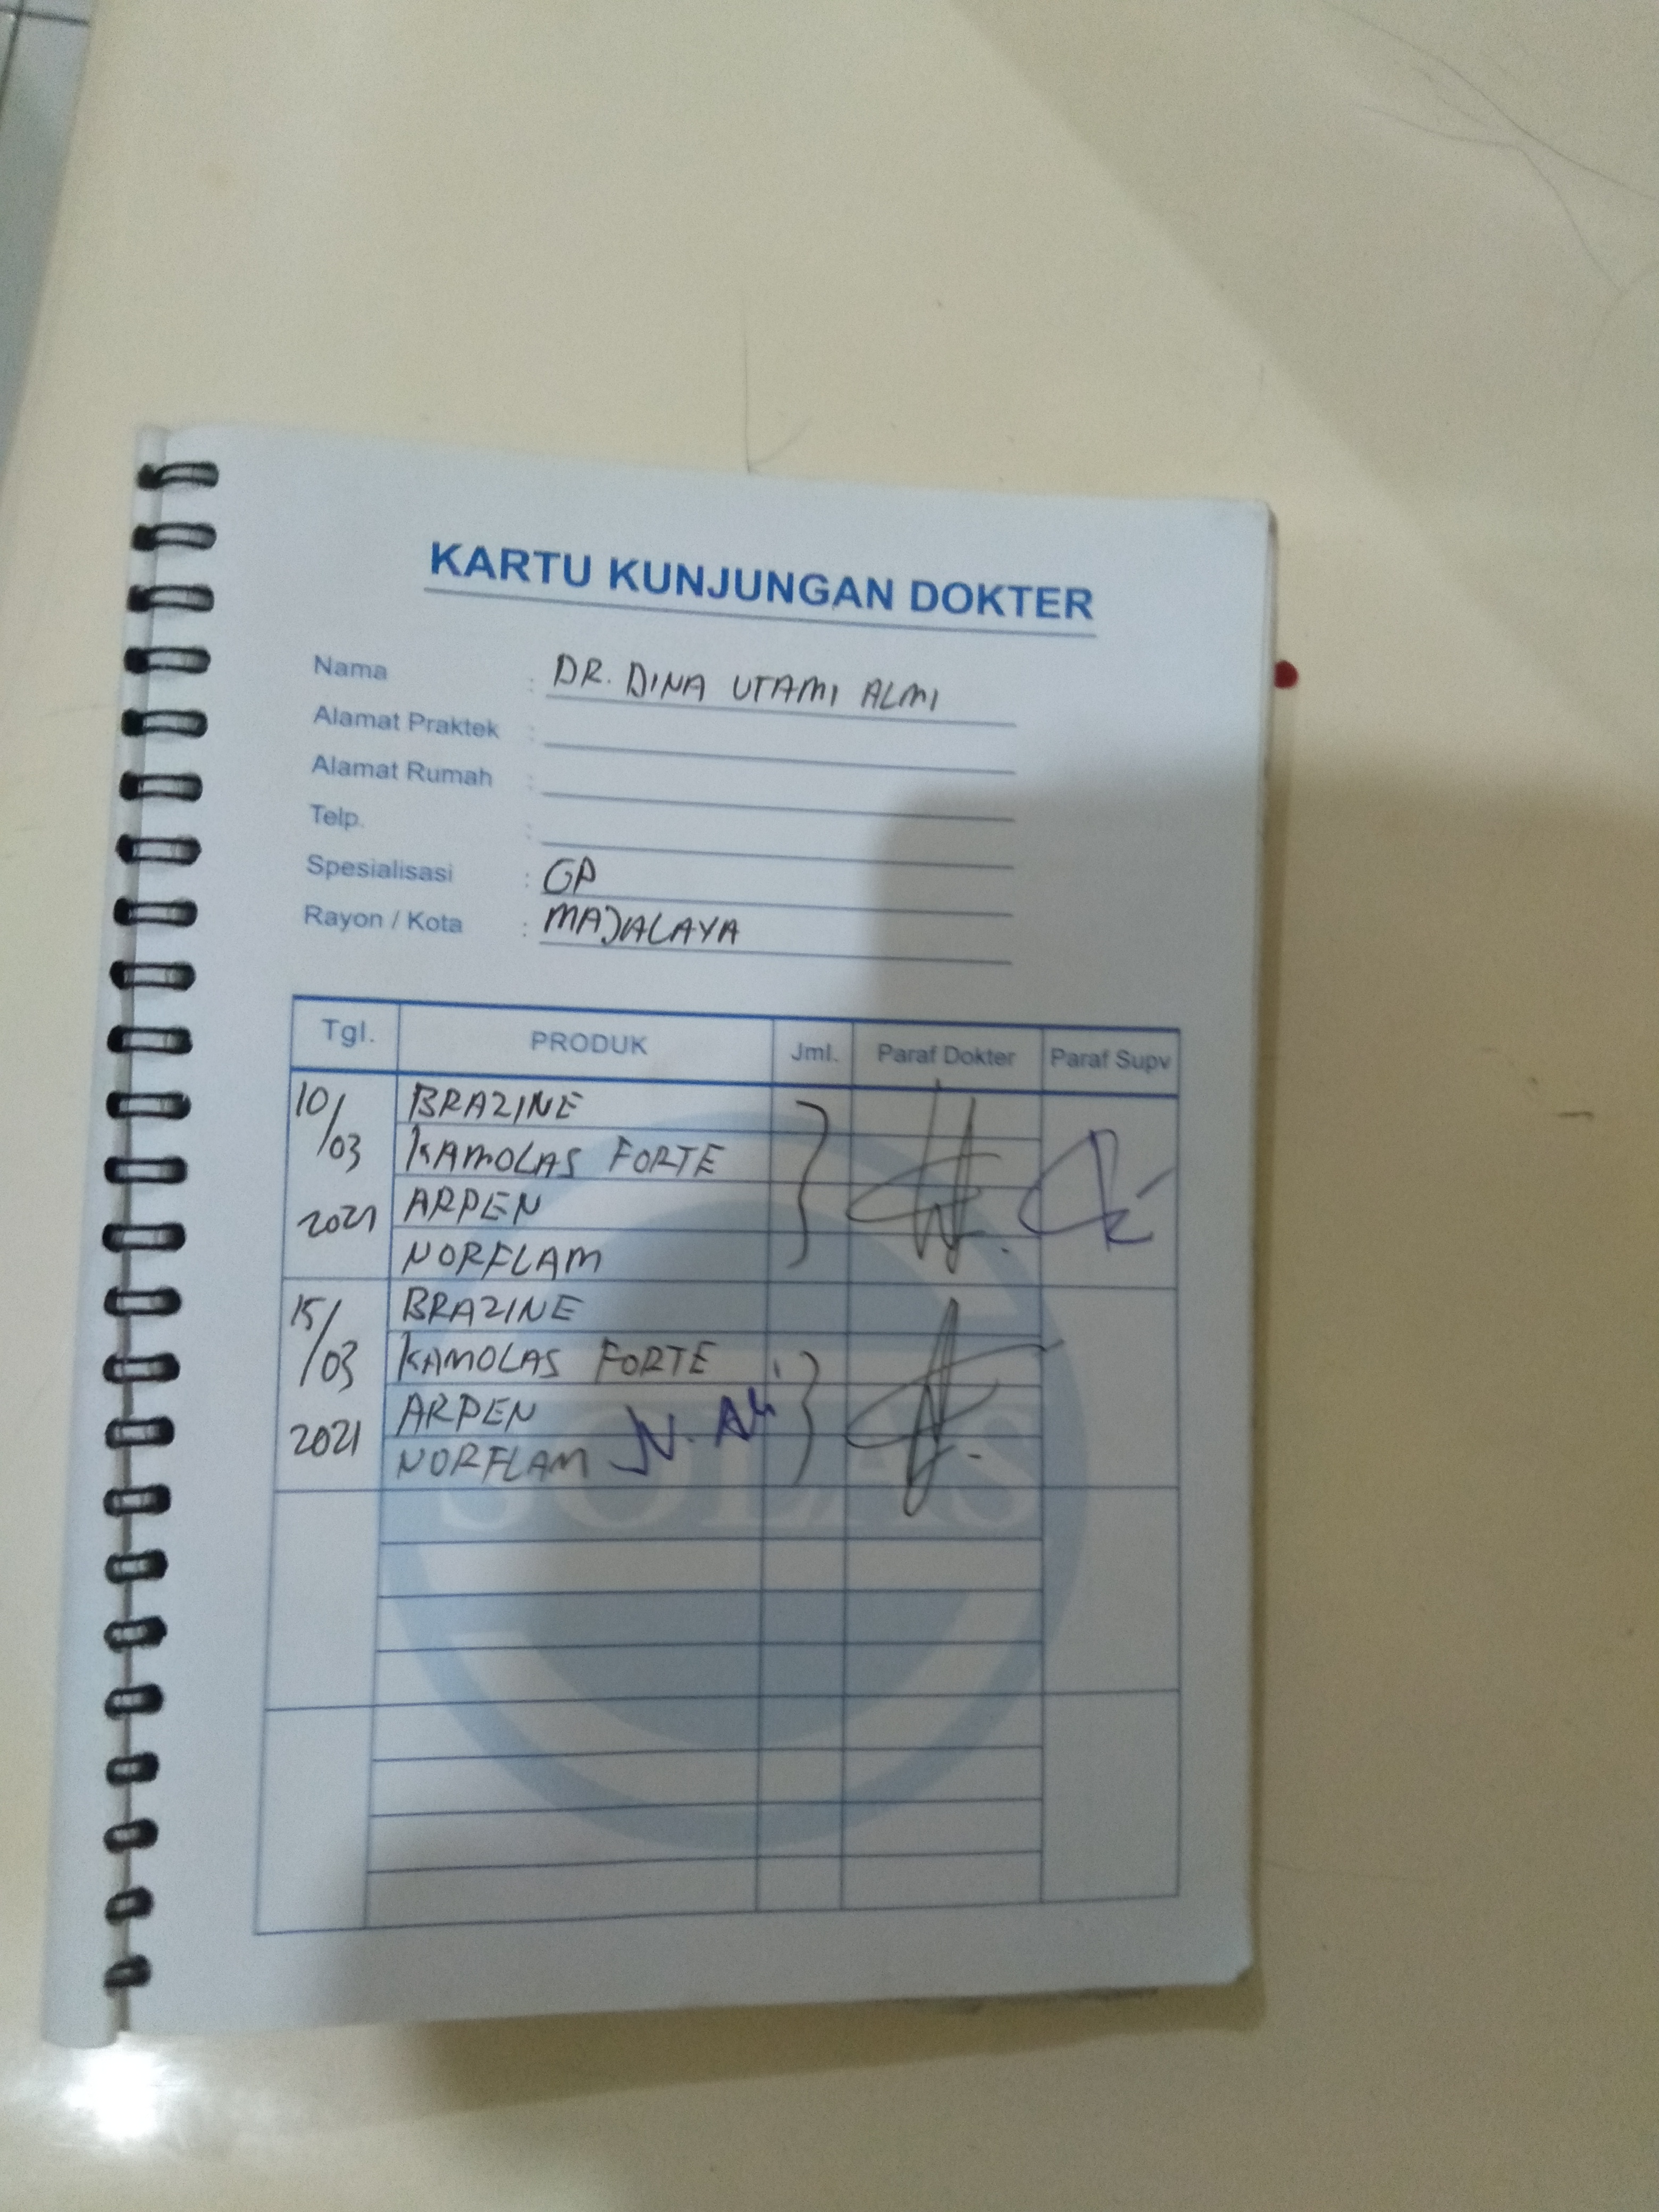 KARTU KUNJUNGAN DOKTER
Nama : DR. DINA UTAMI ALMI
Alamat Praktek :
Alamat Rumah :
Telp. :
Spesialisasi : GP
Rayon / Kota : MAJALAYA
Tgl. PRODUK Jml. Paraf Dokter Paraf Supv
10/03 2021
BRAZINE
KAMOLAS FORTE
ARPEN
NORFLAM
15/03 2021
BRAZINE
KAMOLAS FORTE
ARPEN
NORFLAM
SOLAS